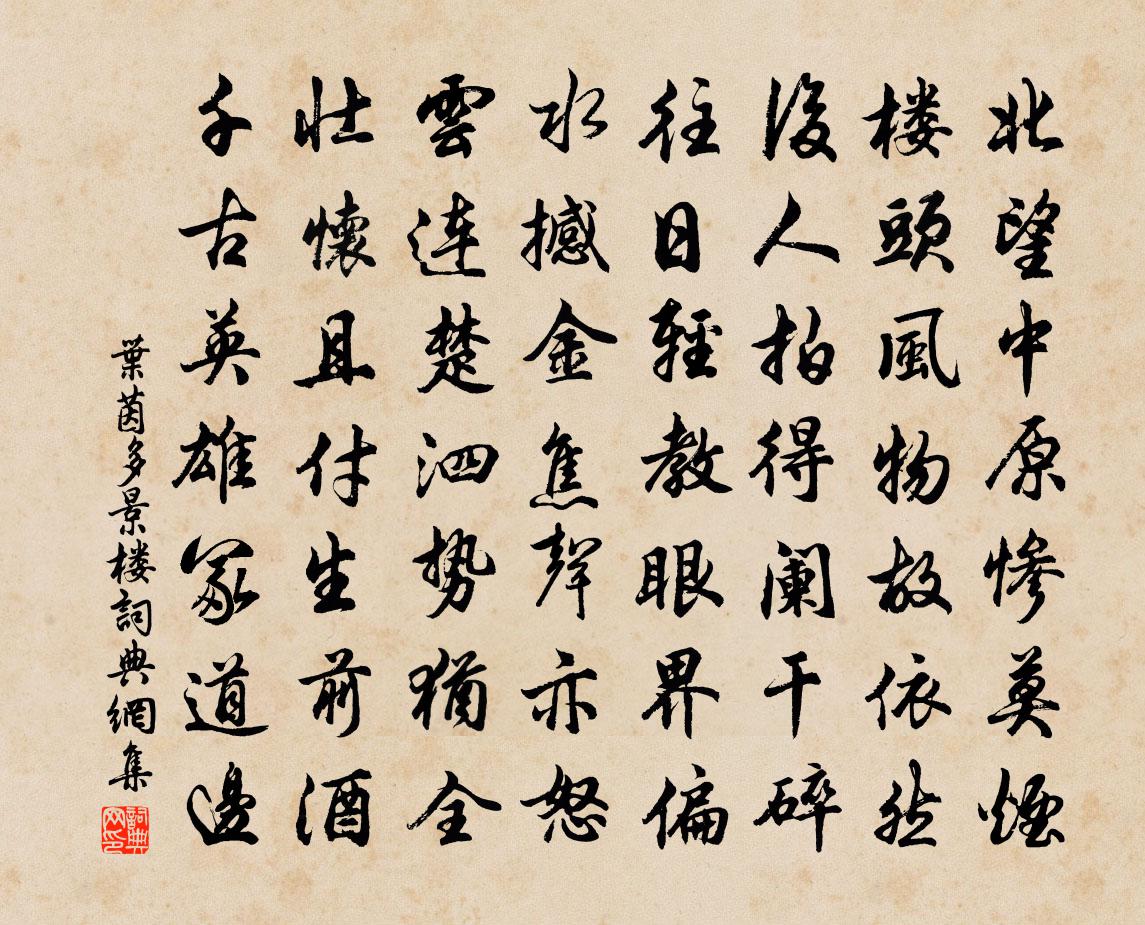 北望中原惨莫煙
楼頭風物故依然
後人拍得阑干碎
往日輕教眼界偏
水撼金焦聲亦怒
雲連楚泗势猶全
壮懷且付生前酒
千古英雄冢道邊
葉茵多景楼詞典網集
詞典网印